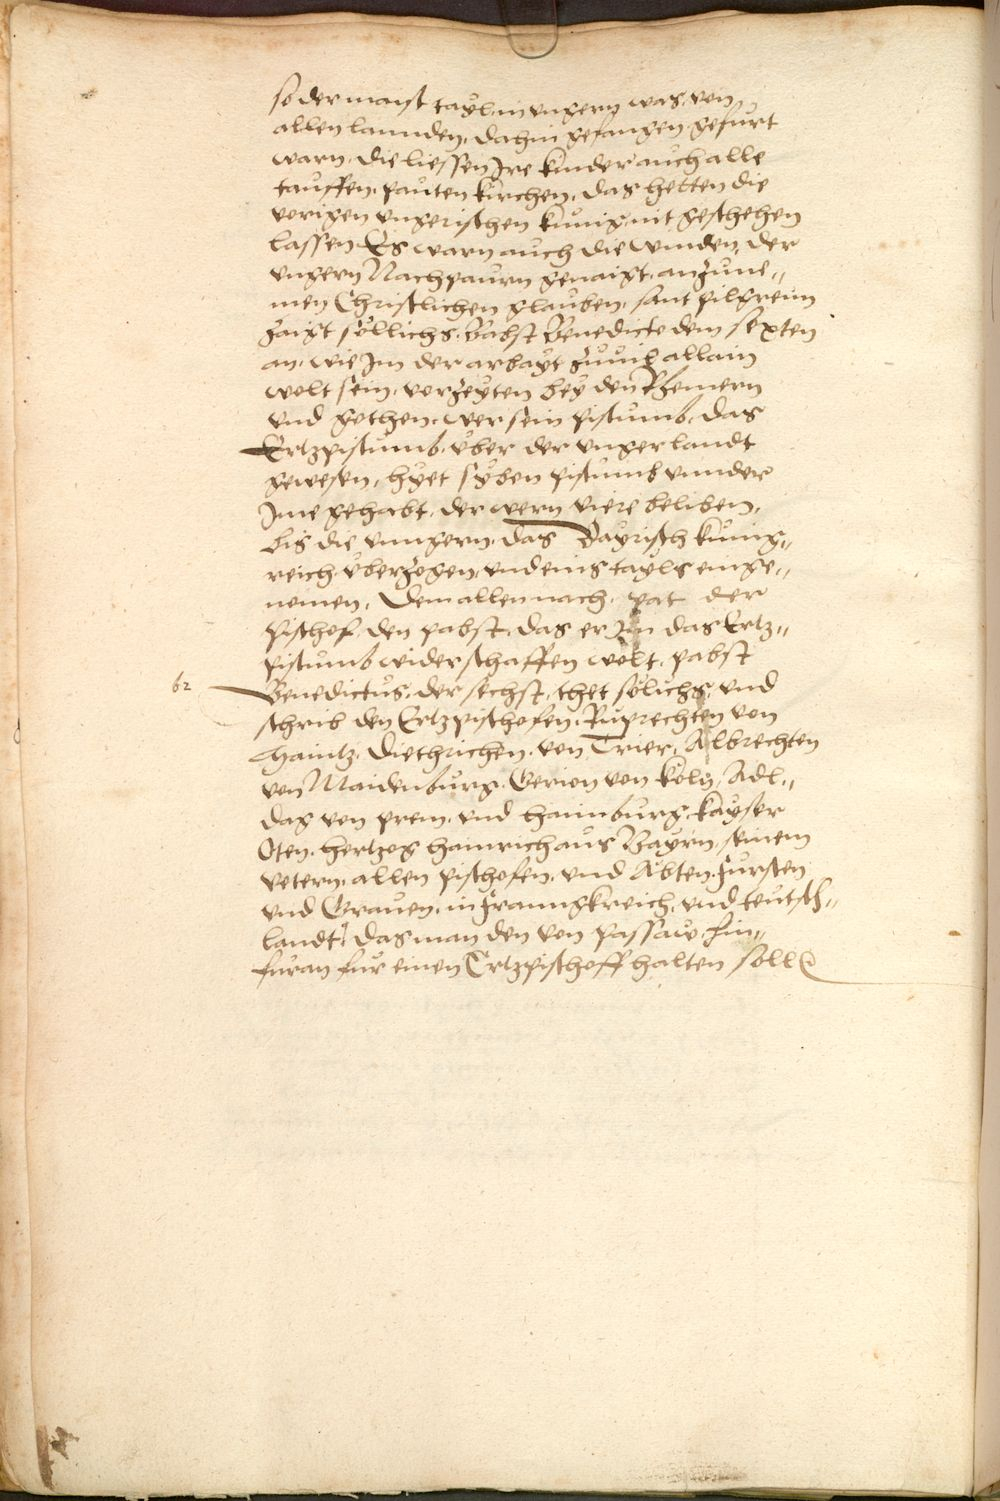 so der maist tayl, in vngern was, von
allen lannden, dahin gefangen gefürt
warn, die liessen Jre kinder auch alle
tauffen, pauten kirchen, das hetten die
vorigen vngerischen künig nit geschehen
lassen. Es warn auch die winden, der
vngern Nachpaurn genaigt, anzune„
men Christlichen glauben, sant pilgreim
zaigt söllichs, Babst Benedicte dem sexten
an, wie Jm der arbayt zuuil allain
wolt sein, vorzeyten bey den Rhemern
vnd gothen, wer sein pistumb, das
Ertzpistumb, über der vnger landt
gewesen, hyet syben pistumb vnnder
Jme gehabt, der wern viere beliben,
bis die vnngern, das Bayrisch künig„
reich überzogen, vnd eins tayls einge„
nomen, Dem allen nach, pat der
Pischof, den pabst, das er Jm das Ertz„
pistumb wider schaffen wolt, pabst
62 Benedictus, der sechst, thet sölichs, vnd
schrib den Ertzpischofen, Ruprechten von
Maintz, Diethrichen, von Trier, Albrechten
von Maidenburg, Gerion von Köln, Adl„
dag von prem, vnd haimburg, kayser
Oten, hertzog hainrich aus Bayrn, seinem
vetern, allen pischofen, vnd Abten, fursten
vnd Grauen, in franngkreich, vnd teutsch„
landt, das man den von passaw, hin„
furan für einen Ertzpischoff halten soll